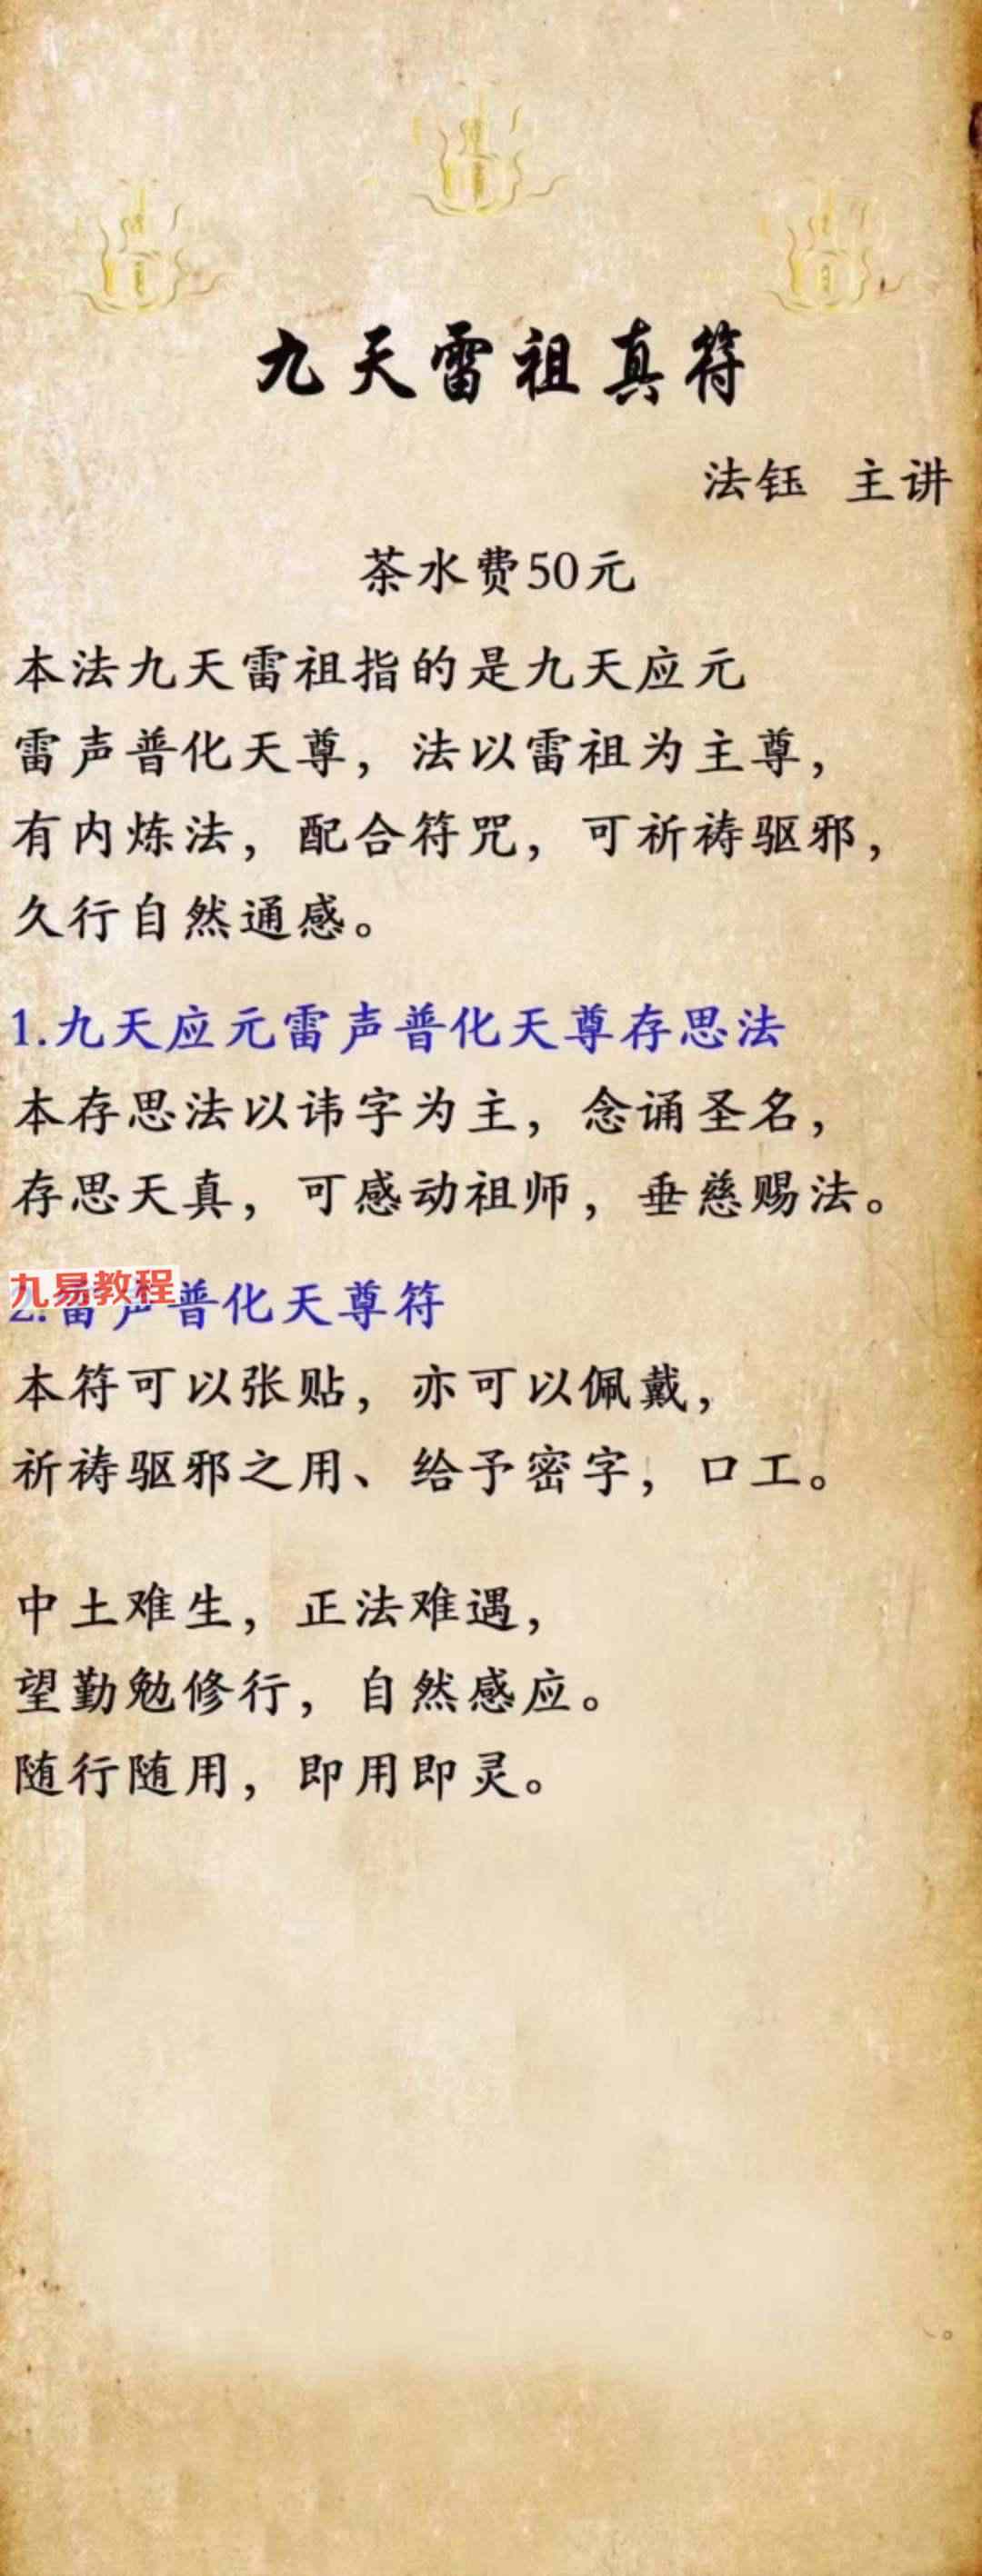 九天雷祖真符
法钰 主讲
茶水费50元
本法九天雷祖指的是九天应元
雷声普化天尊，法以雷祖为主尊，
有内炼法，配合符咒，可祈祷驱邪，
久行自然通感。
1.九天应元雷声普化天尊存思法
本存思法以讳字为主，念诵圣名，
存思天真，可感动祖师，垂慈赐法。
九易教程
2.雷声普化天尊符
本符可以张贴，亦可以佩戴，
祈祷驱邪之用、给予密字，口工。
中土难生，正法难遇，
望勤勉修行，自然感应。
随行随用，即用即灵。